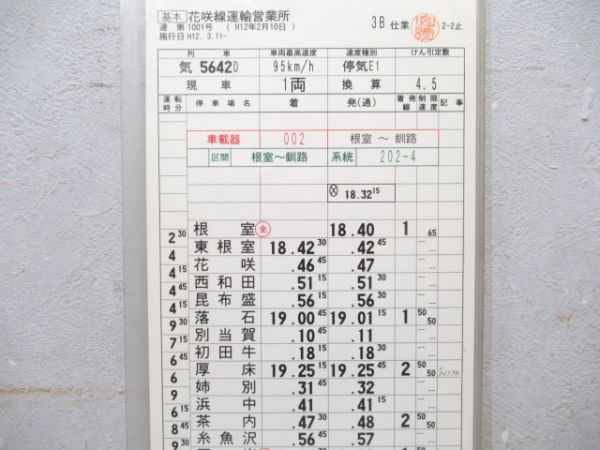 基本 花咲線運輸営業所
達 第1001号 ( H12年2月10日 ) 3B 仕業 2-2止
施行日 H12. 3.11-
列車 車両最高速度 速度種別 けん引定数
気 5642D 95km/h 停気E1
現車 1両 換算 4.5
運転時分 停車場名 着 発(通) 着発線 制限速度 記事
車載器 002 根室 ～ 釧路
区間 根室～釧路 系統 202-4
18.32 15
根室 全 18.40 1 65
2 30
東根室 18.42 30 .42 45
4
花咲 .46 45 .47
4 15
西和田 .51 15 .51 30
4 45
昆布盛 .56 15 .56 30
4 15
落石 19.00 45 19.01 15 1 50 50
9 30
別当賀 .10 45 .11
7 15
初田牛 .18 15 .18 30
6 45
厚床 19.25 15 19.25 45 2 50 50
6
姉別 .31 45 .32
9
浜中 .41 .41 15
6 15
茶内 .47 30 .48 2 50 50
8 45
糸魚沢 .56 45 .57
9 30